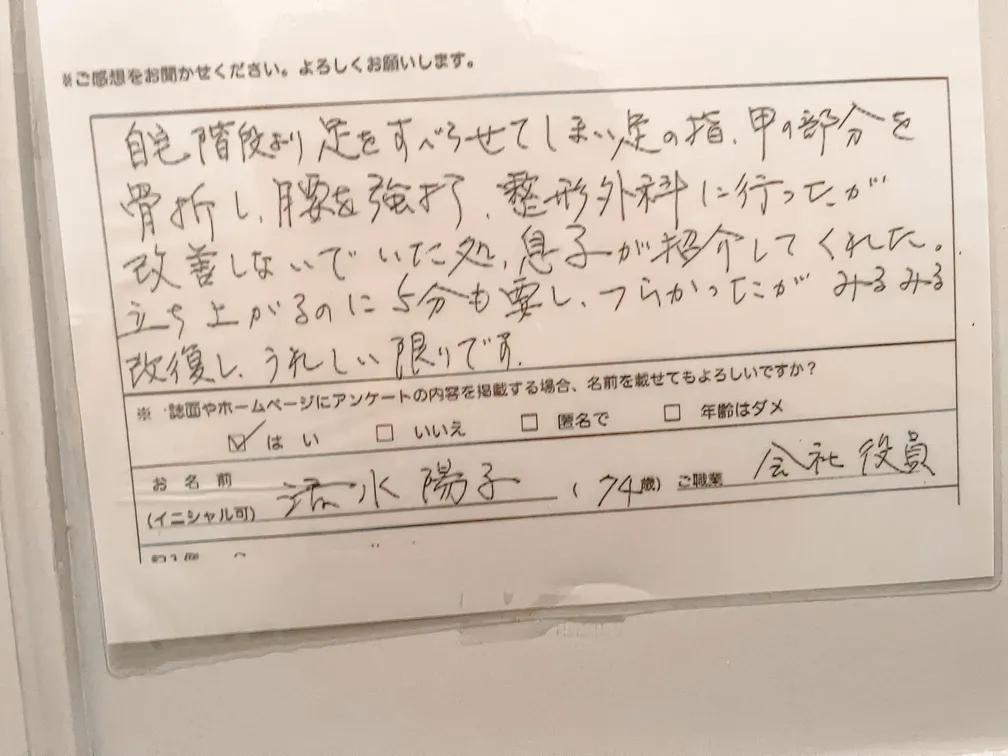 ※ご感想をお聞かせください。よろしくお願いします。
自宅階段より足をすべらせてしまい足の指、甲の部分を
骨折し、腰を強打、整形外科に行ったが
改善しないでいた処、息子が紹介してくれた。
立ち上がるのに5分も要し、つらかったがみるみる
改復し、うれしい限りです。
※ 誌面やホームページにアンケートの内容を掲載する場合、名前を載せてもよろしいですか？
☑ はい □ いいえ □ 匿名で □ 年齢はダメ
お名前 水 陽子 (74歳) ご職業 会社役員
(イニシャル可)